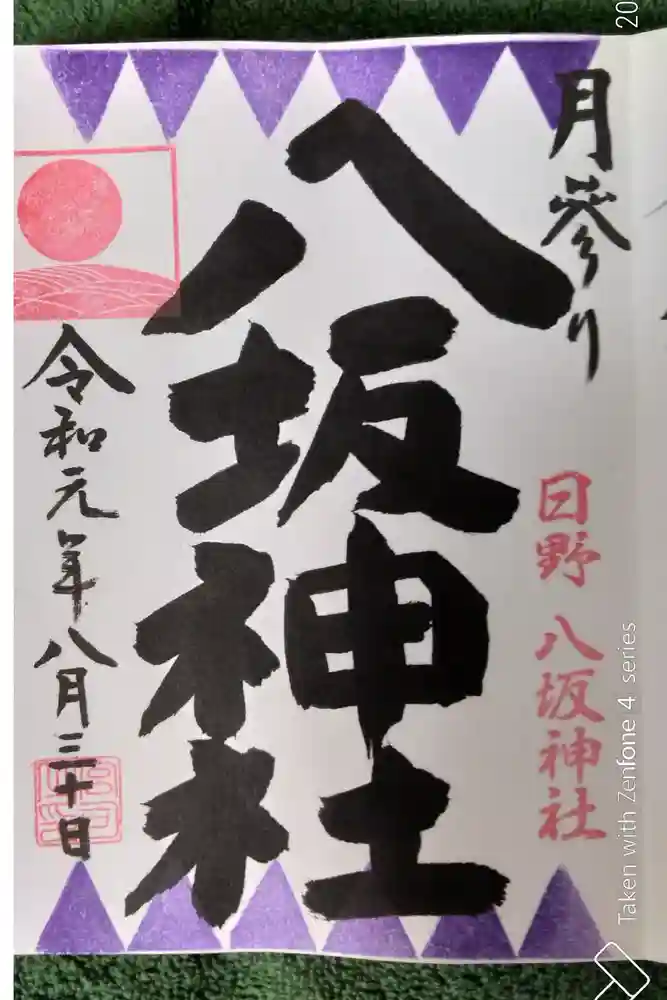 月参り
日野 八坂神社
八坂神社
令和元年八月三十日
20
Taken with Zenfone 4 series